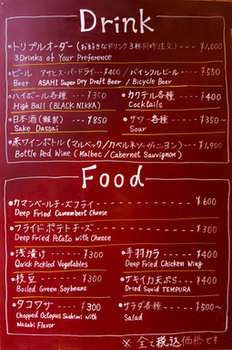 Drink
•トリプルオーダー(お好きなドリンク3杯同時注文)---¥1,000
3Drinks of Your Preference
•ビール アサヒスーパードライ--¥400 / バイシクルビール---¥550
Beer ASAHI Super Dry Draft Beer / Bicycle Beer
•ハイボール各種---¥350
High Ball (BLACK NIKKA)
•カクテル各種---¥400
Cocktails
•日本酒---¥850
Sake Dassai
•サワー各種---¥350
Sour
•赤ワインボトル(マルベック/カベルネソーヴィニヨン)---¥1,900
Bottle Red Wine (Malbec / Cabernet Sauvignon)
Food
•カマンベールチーズフライ---¥600
Deep Fried Camembert Cheese
•フライドポテトチーズ---¥300
Deep Fried Potato with Cheese
•浅漬け---¥300
Quick Pickled Vegetables
•手羽カラ---¥400
Deep Fried Chicken Wing
•枝豆---¥300
Boiled Green Soybeans
•サキイカ天ぷら---¥400
Dried Squid TEMPURA
•タコワサ---¥300
Chopped Octopus Sashimi with
Wasabi Flavor
•サラダ各種---¥500~
Salad
※ 全て税込価格です